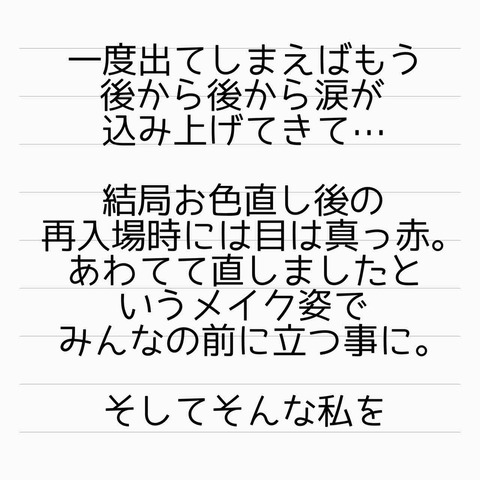 一度出てしまえばもう
後から後から涙が
込み上げてきて…
結局お色直し後の
再入場時には目は真っ赤。
あわてて直しましたと
いうメイク姿で
みんなの前に立つ事に。
そしてそんな私を